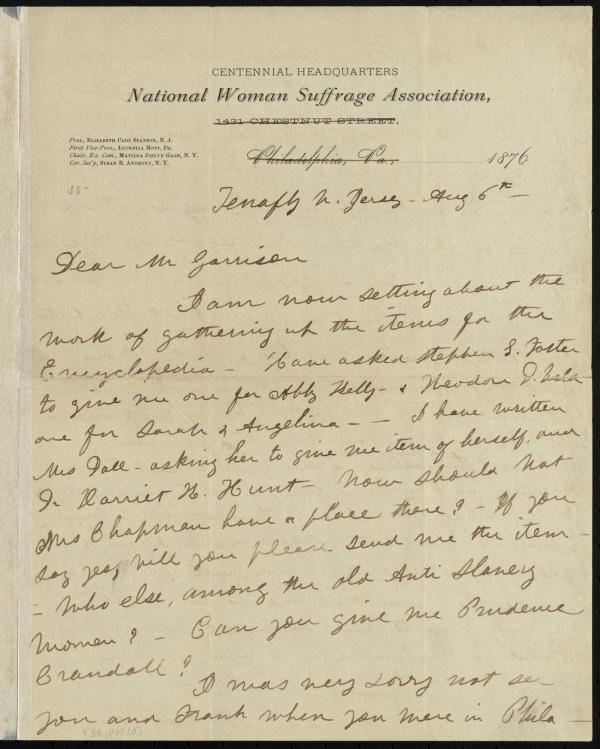 CENTENNIAL HEADQUARTERS
National Woman Suffrage Association,
1431 CHESTNUT STREET,
Pres., ELIZABETH CADY STANTON, N. J.
First Vice-Pres., LUCRETIA MOTT, Pa.
Chair. Ex. Com., MATILDA JOSLYN GAGE, N. Y.
Cor. Sec'y, SUSAN B. ANTHONY, N. Y.
Philadelphia, Pa., 1876
Tenafly N. Jersey - Aug 6th -
Dear Mr Garrison
I am now setting about the
work of gathering up the items for the
Encyclopedia - Have asked Stephen S. Foster
to give me one for Abby Kelly - & Theodore D. Weld
one for Sarah & Angelina - - I have written
Mrs Dall - asking her to give me item of herself, and
Dr Harriet K. Hunt - Now should not
Mrs Chapman have a place there? - If you
say yes, will you please send me the item -
- Who else, among the old Anti Slavery
Women? - Can you give me Prudence
Crandall?
I was very sorry not see
you and Frank when you were in Phila -